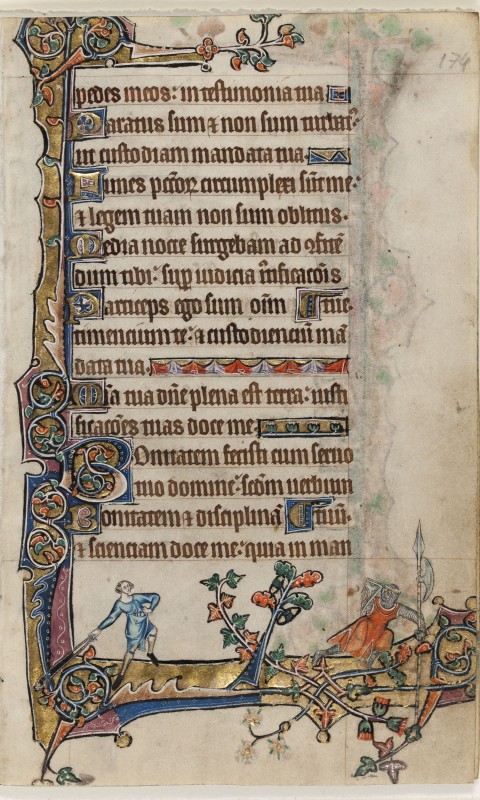 174
pedes meos: in testimonia tua.
Paratus sum ⁊ non sum turbat᷒:
ut custodiam mandata tua.
Funes pctoꝝ circumplexi sūt me:
⁊ legem tuam non sum oblitus.
Media nocte surgebam ad ꝯfitē
dum tibi: suꝑ iudicia iᷤtificacōis
Particeps ego sum oīm tue.
timencium te: ⁊ custodienciū mā
data tua.
Mīa tua dn̄e plena est terra: iusti
ficacōes tuas doce me.
Bonitatem fecisti cum seruo
tuo domine: scd̄m uerbum
Bonitatem ⁊ disciplinā tuū.
⁊ scienciam doce me: quia in man